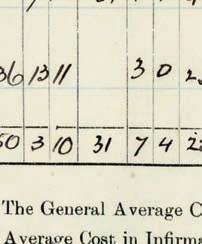 36 13 11 3 0
50 3 10 31 7 4
The General Average C
Average Cost in Infirma